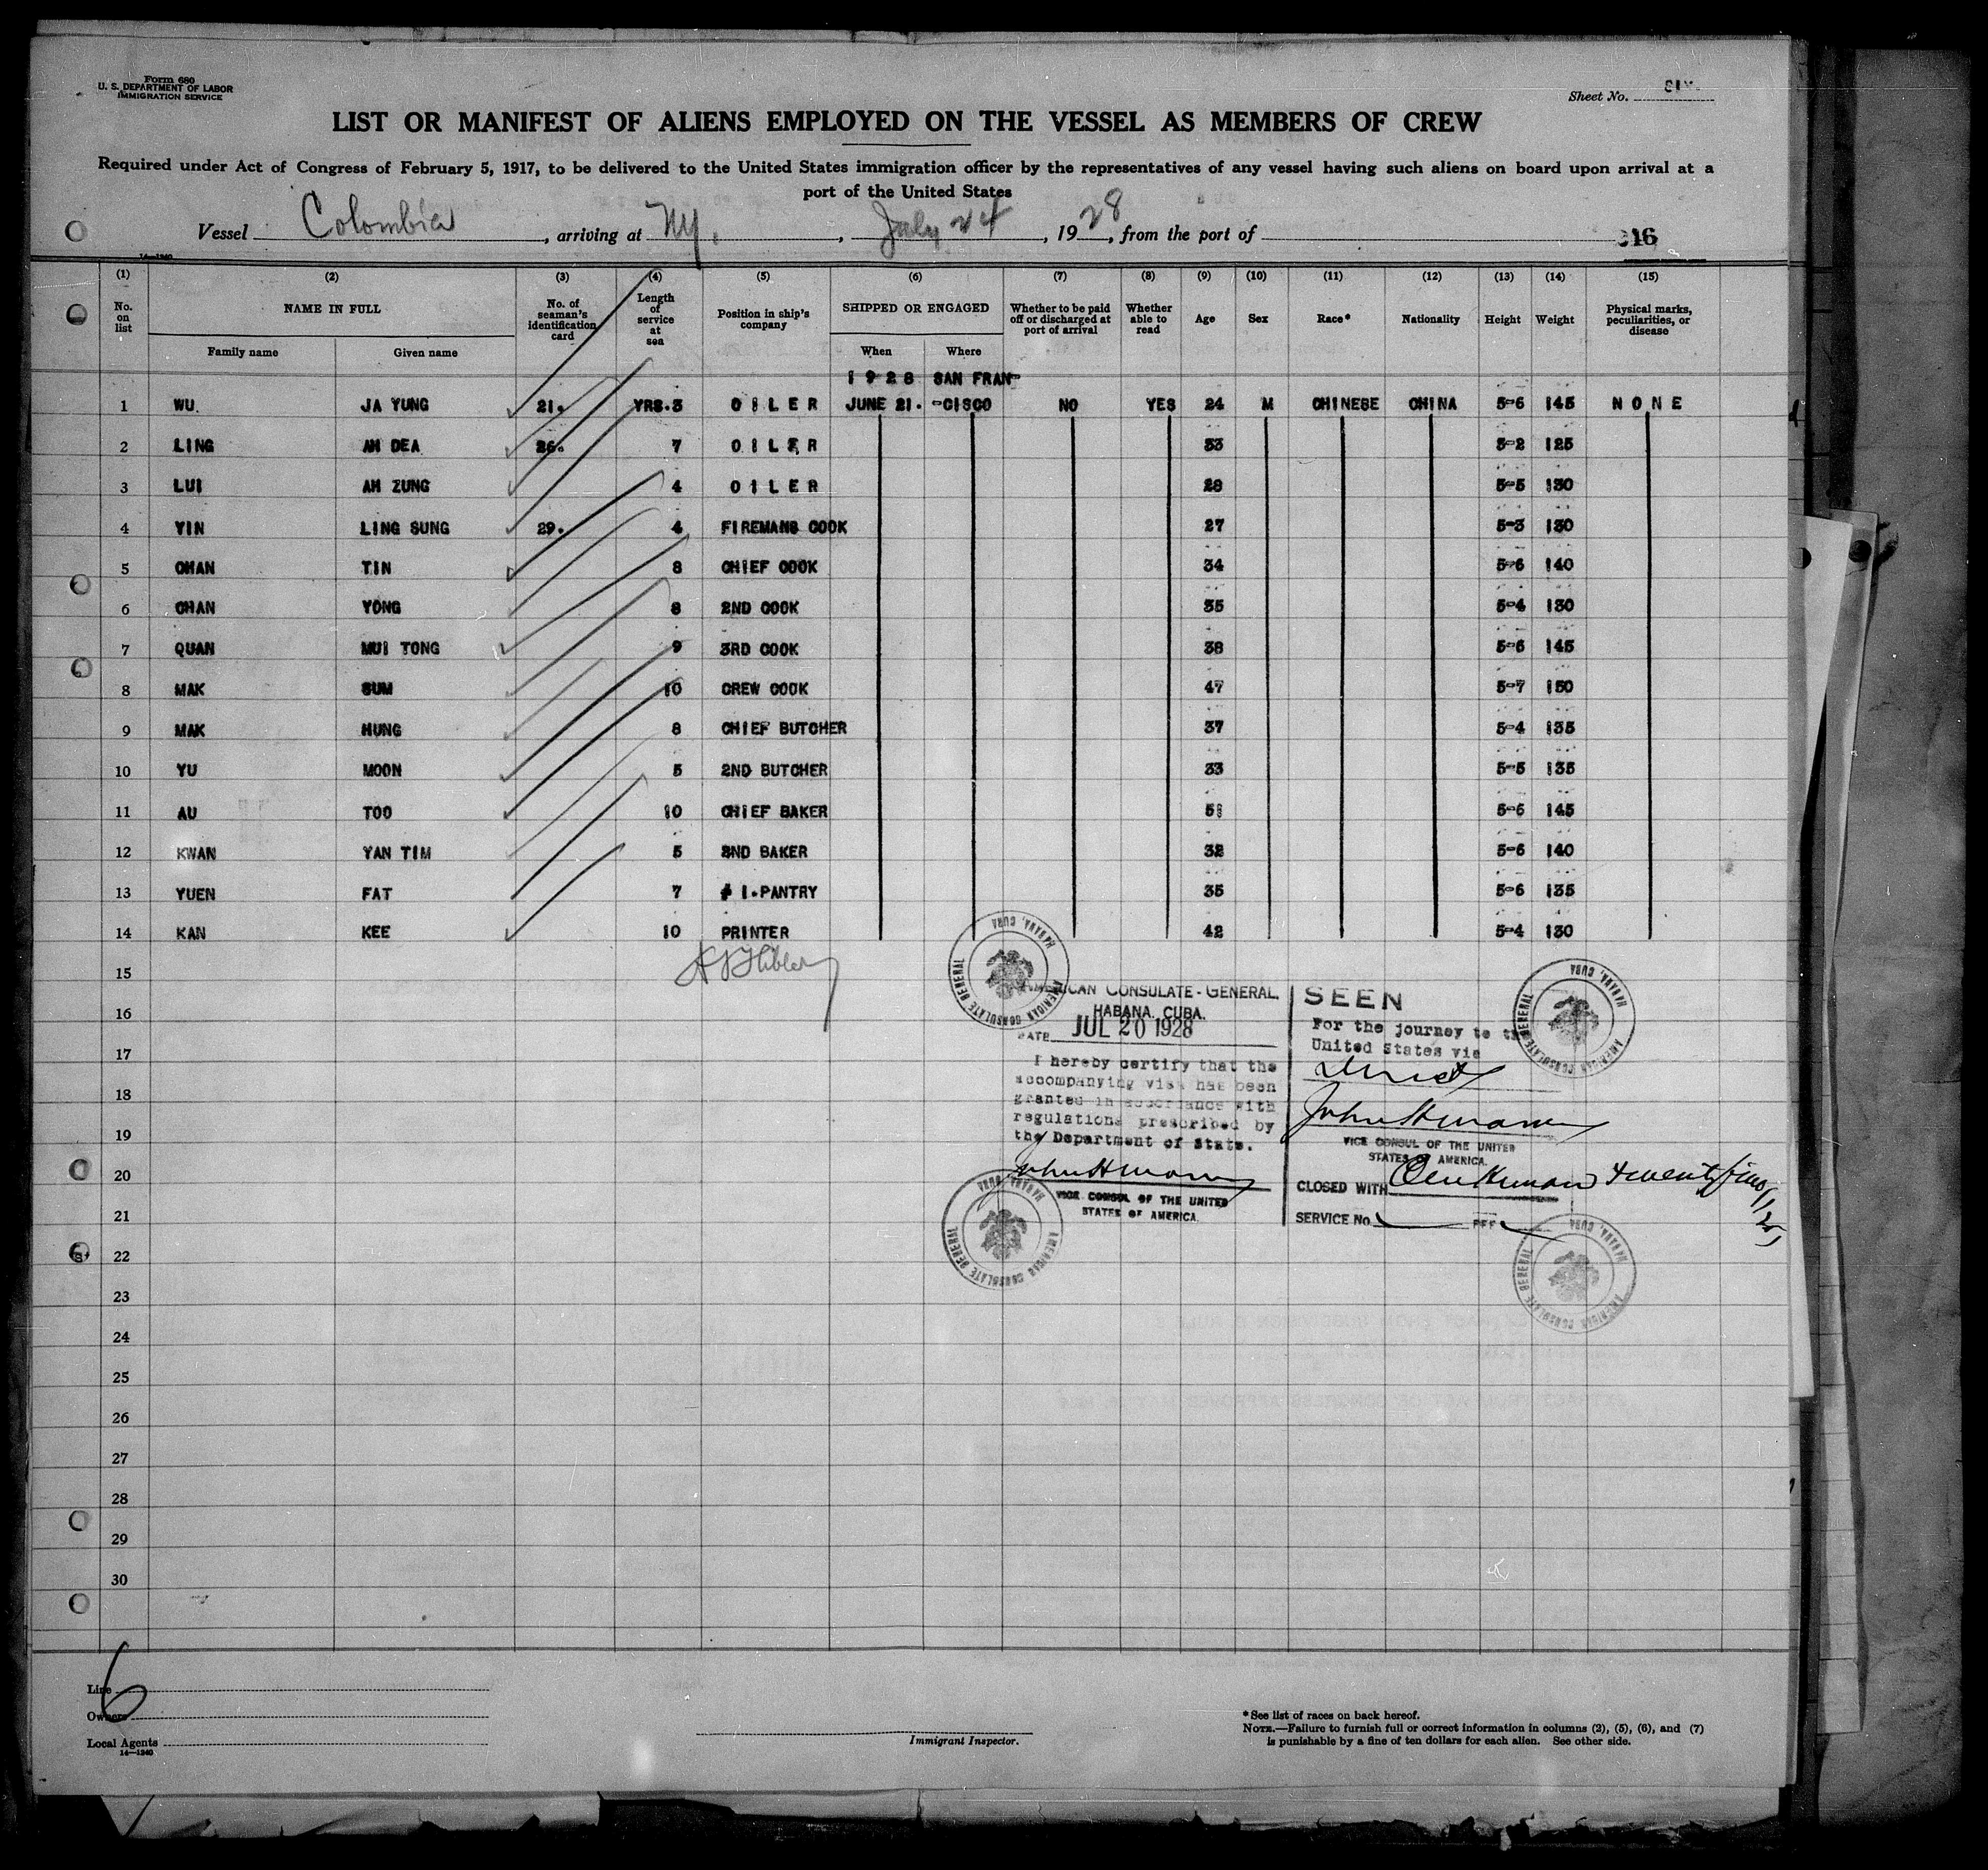 Form 680
U. S. DEPARTMENT OF LABOR
IMMIGRATION SERVICE
Sheet No. SIX
LIST OR MANIFEST OF ALIENS EMPLOYED ON THE VESSEL AS MEMBERS OF CREW
Required under Act of Congress of February 5, 1917, to be delivered to the United States immigration officer by the representatives of any vessel having such aliens on board upon arrival at a
port of the United States
Vessel Colombia, arriving at NY., July 24, 1928, from the port of
14—1240
(1) (2) (3) (4) (5) (6) (7) (8) (9) (10) (11) (12) (13) (14) (15)
No. on list NAME IN FULL Family name Given name No. of seaman's identification card Length of service at sea Position in ship's company SHIPPED OR ENGAGED When Where Whether to be paid off or discharged at port of arrival Whether able to read Age Sex Race* Nationality Height Weight Physical marks, peculiarities, or disease
1928 SAN FRAN-
1 WU. JA YUNG 21. YRS.3 OILER JUNE 21. -CISCO NO YES 24 M CHINESE CHINA 5-6 145 NONE
2 LING AH DEA 26. 7 OILER 33 5-2 125
3 LUI AH ZUNG 4 OILER 28 5-5 130
4 YIN LING SUNG 29. 4 FIREMANS COOK 27 5-3 130
5 CHAN TIN 8 CHIEF COOK 34 5-6 140
6 CHAN YONG 8 2ND COOK 35 5-4 130
7 QUAN MUI TONG 9 3RD COOK 38 5-6 145
8 MAK SUM 10 CREW COOK 47 5-7 150
9 MAK HUNG 8 CHIEF BUTCHER 37 5-4 135
10 YU MOON 5 2ND BUTCHER 33 5-5 135
11 AU TOO 10 CHIEF BAKER 51 5-6 145
12 KWAN YAN TIM 5 2ND BAKER 32 5-6 140
13 YUEN FAT 7 # 1.PANTRY 35 5-6 135
14 KAN KEE 10 PRINTER 42 5-4 130
15
16
17
18
19
20
21
22
23
24
25
26
27
28
29
30
AMERICAN CONSULATE GENERAL HABANA, CUBA
AMERICAN CONSULATE-GENERAL,
HABANA, CUBA.
DATE JUL 20 1928
I hereby certify that the
accompanying visa has been
granted in accordance with
regulations prescribed by
the Department of State.
VICE CONSUL OF THE UNITED
STATES OF AMERICA.
AMERICAN CONSULATE GENERAL HABANA, CUBA
SEEN
For the journey to the
United States via
direct
VICE CONSUL OF THE UNITED
STATES OF AMERICA.
CLOSED WITH
SERVICE No. FEE
AMERICAN CONSULATE GENERAL HABANA, CUBA
AMERICAN CONSULATE GENERAL HABANA, CUBA
6
Line
Owners
Local Agents
14—1240
Immigrant Inspector.
*See list of races on back hereof.
NOTE.—Failure to furnish full or correct information in columns (2), (5), (6), and (7)
is punishable by a fine of ten dollars for each alien. See other side.